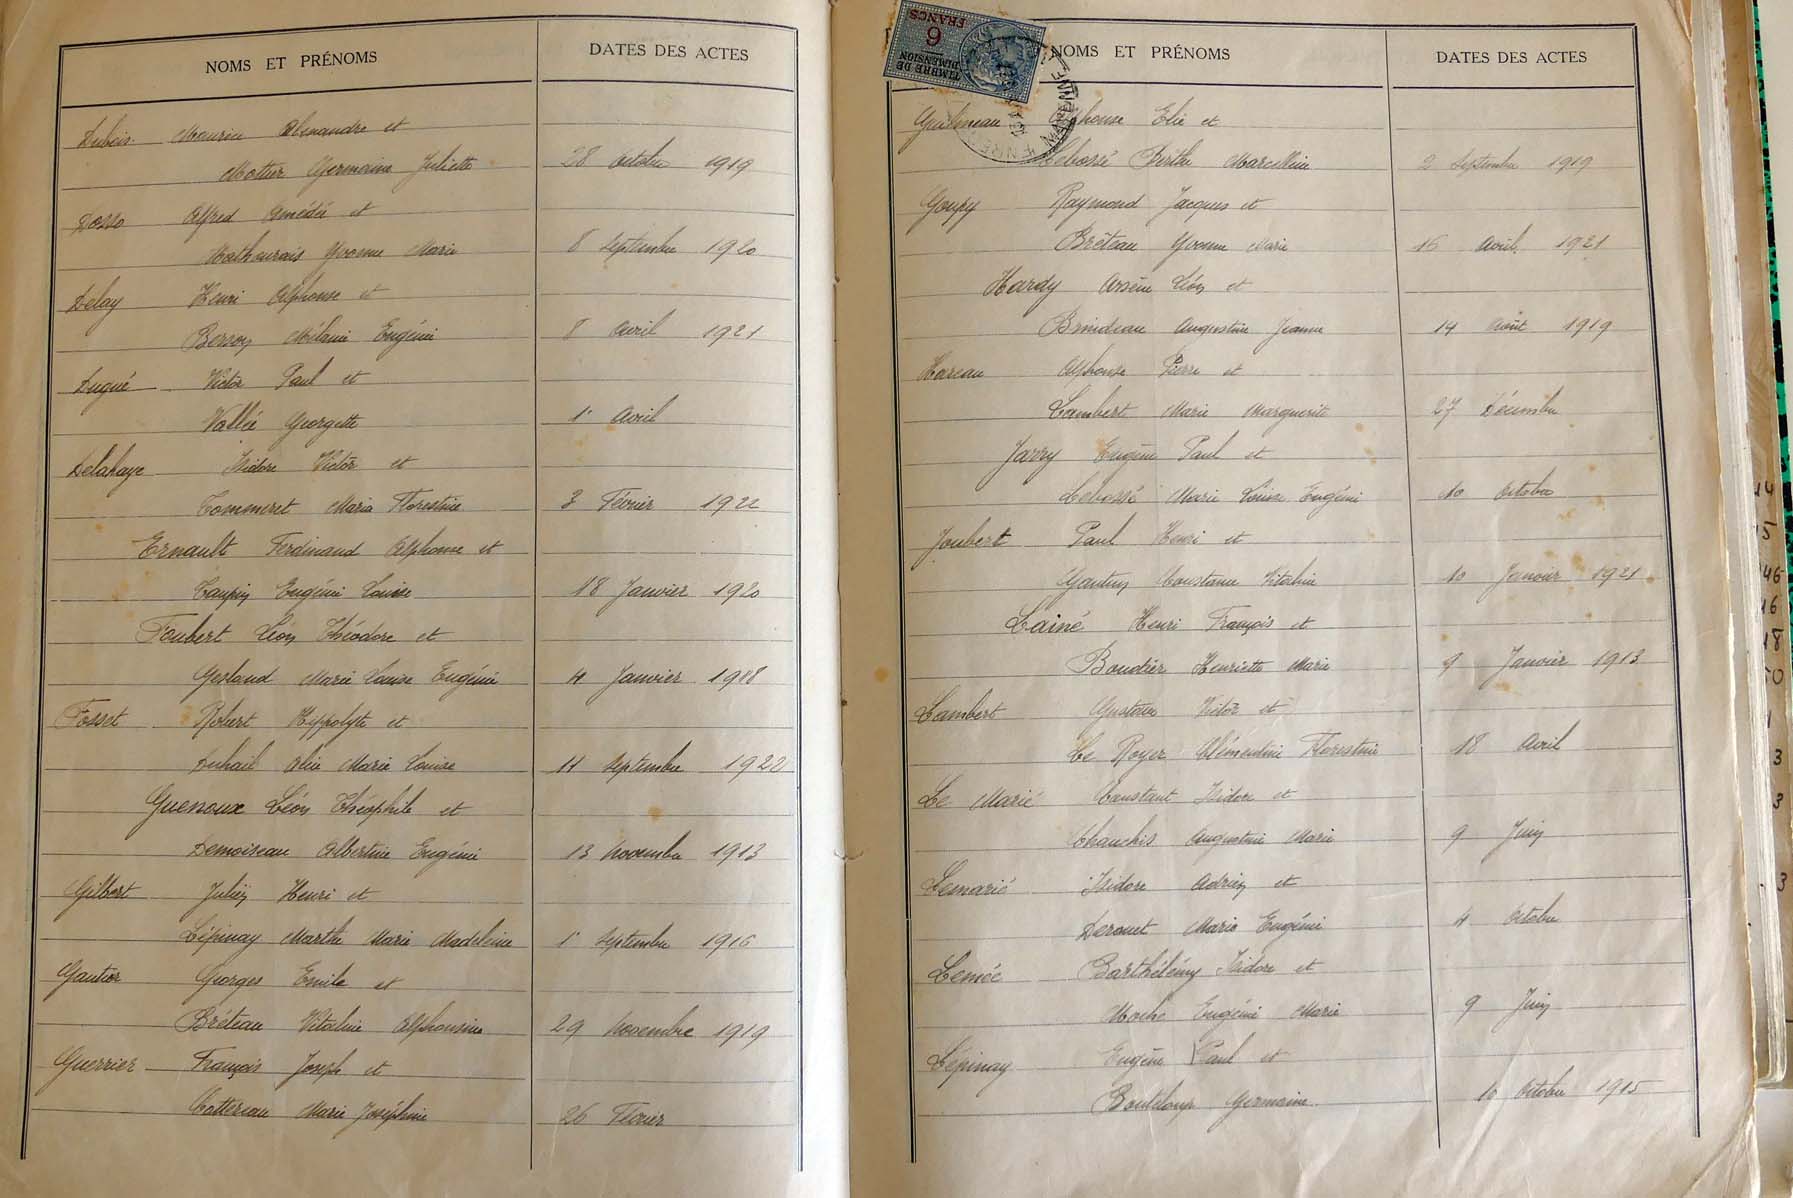 NOMS ET PRÉNOMS DATES DES ACTES
Dubois Maurice Alexandre et
Mottier Germaine Juliette 28 Octobre 1919
Dosso Alfred Amédée et
Mathourais Yvonne Marie 8 Septembre 1920
Delay Henri Alphonse et
Berson Mélanie Eugénie 8 Avril 1921
Dugué Victor Paul et
Vallée Georgette 1er Avril
Delahaye Isidore Victor et
Commeret Maria Florestine 3 Février 1922
Ernault Ferdinand Alphonse et
Taupin Eugénie Louise 18 Janvier 1920
Foubert Léon Théodore et
Gesland Marie Louise Eugénie 4 Janvier
Fosset Robert Hippolyte et
Duhail Marie Louise 11 Septembre 1922
Guenoux Léon Théophile et
Demoiseau Albertine Eugénie 13 Novembre 1913
Gilbert Julien Henri et
Lépinay Marthe Marie Madeleine 1er Septembre 1916
Gautier Georges Emile et
Bréteau Vitaline Alphonsine 29 Novembre 1919
Guerrier François Joseph et
Cottereau Marie Joséphine 26 Février
6 FRANCS
TIMBRE DE DIMENSION
NOMS ET PRÉNOMS DATES DES ACTES
Guilmeau Alphonse Elie et
Lebossé Berthe Marcelline 2 Septembre 1919
Goupy Raymond Jacques et
Bréteau Yvonne Marie 16 Avril 1921
Hardy Arsène Léon et
Brindeau Augustine Jeanne 14 Août 1919
Hareau Alphonse Pierre et
Lambert Marie Marguerite 27 Décembre
Jarry Eugène Paul et
Lebossé Marie Louise Eugénie 10 Octobre
Joubert Paul Henri et
Constance Vitaline 10 Janvier 1921
Lainé Henri François et
Boudier Henriette Marie 9 Janvier 1913
Lambert Gustave Victor et
Le Royer Clémentine Florestine 18 Avril
Le Marié Constant Isidore et
Chauchis Augustine Marie 9 Juin
Lemarié Isidore Adrien et
Derouet Marie Eugénie 4 Octobre
Lemée Barthélémy Isidore et
Moche Eugénie Marie 9 Juin
Lépinay Eugène Paul et
Bouteloup Germaine 10 Octobre 1915